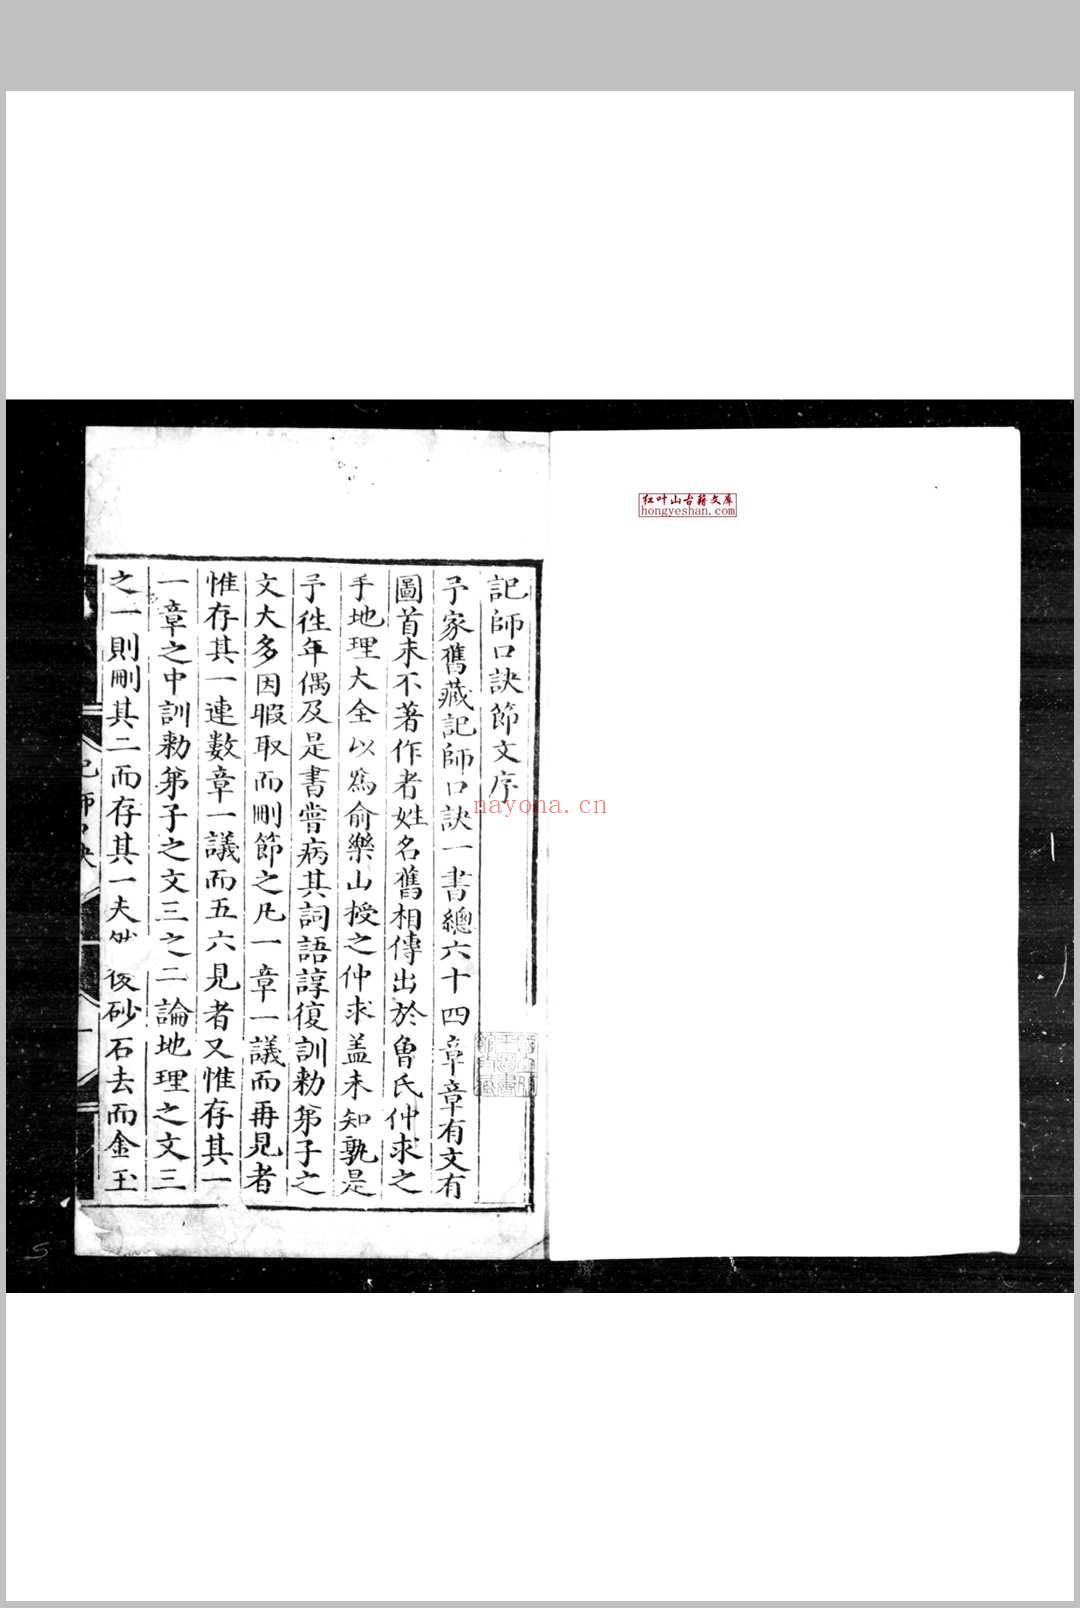 红叶山古籍文库
hongyeshan.com
nayona.cn
記師口訣節文序
予家舊藏記師口訣一書總六十四章章有文有
圖首末不著作者姓名舊相傳出於曾氏仲求之
手地理大全以爲俞樂山授之仲求盖未知孰是
予徃年偶及是書嘗病其詞語諄復訓勅弟子之
文大多因暇取而刪節之凡一章一議而再見者
惟存其一連數章一議而五六見者又惟存其一
一章之中訓勅弟子之文三之二論地理之文三
之一則刪其二而存其一夫然後砂石去而金玉